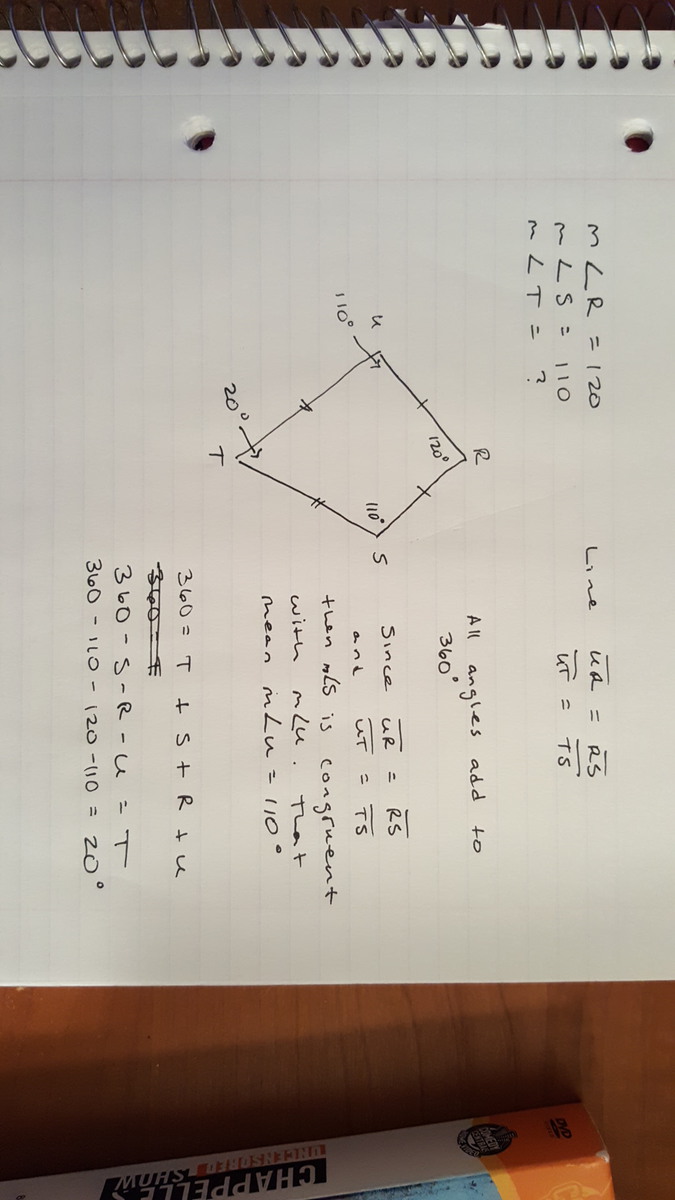 m∠R = 120
m∠S = 110
m∠T = ?
Line UR = RS
UT = TS
R
120°
U
110°
110°
S
20°
T
All angles add to
360°
Since UR = RS
and UT = TS
then m∠S is congruent
with m∠U. That
mean m∠U = 110°
360 = T + S + R + U
360 - S - R - U = T
360 - 110 - 120 - 110 = 20°
DVD
COMEDY CENTRAL
CHAPPELLE'S
SHOW
UNCENSORED